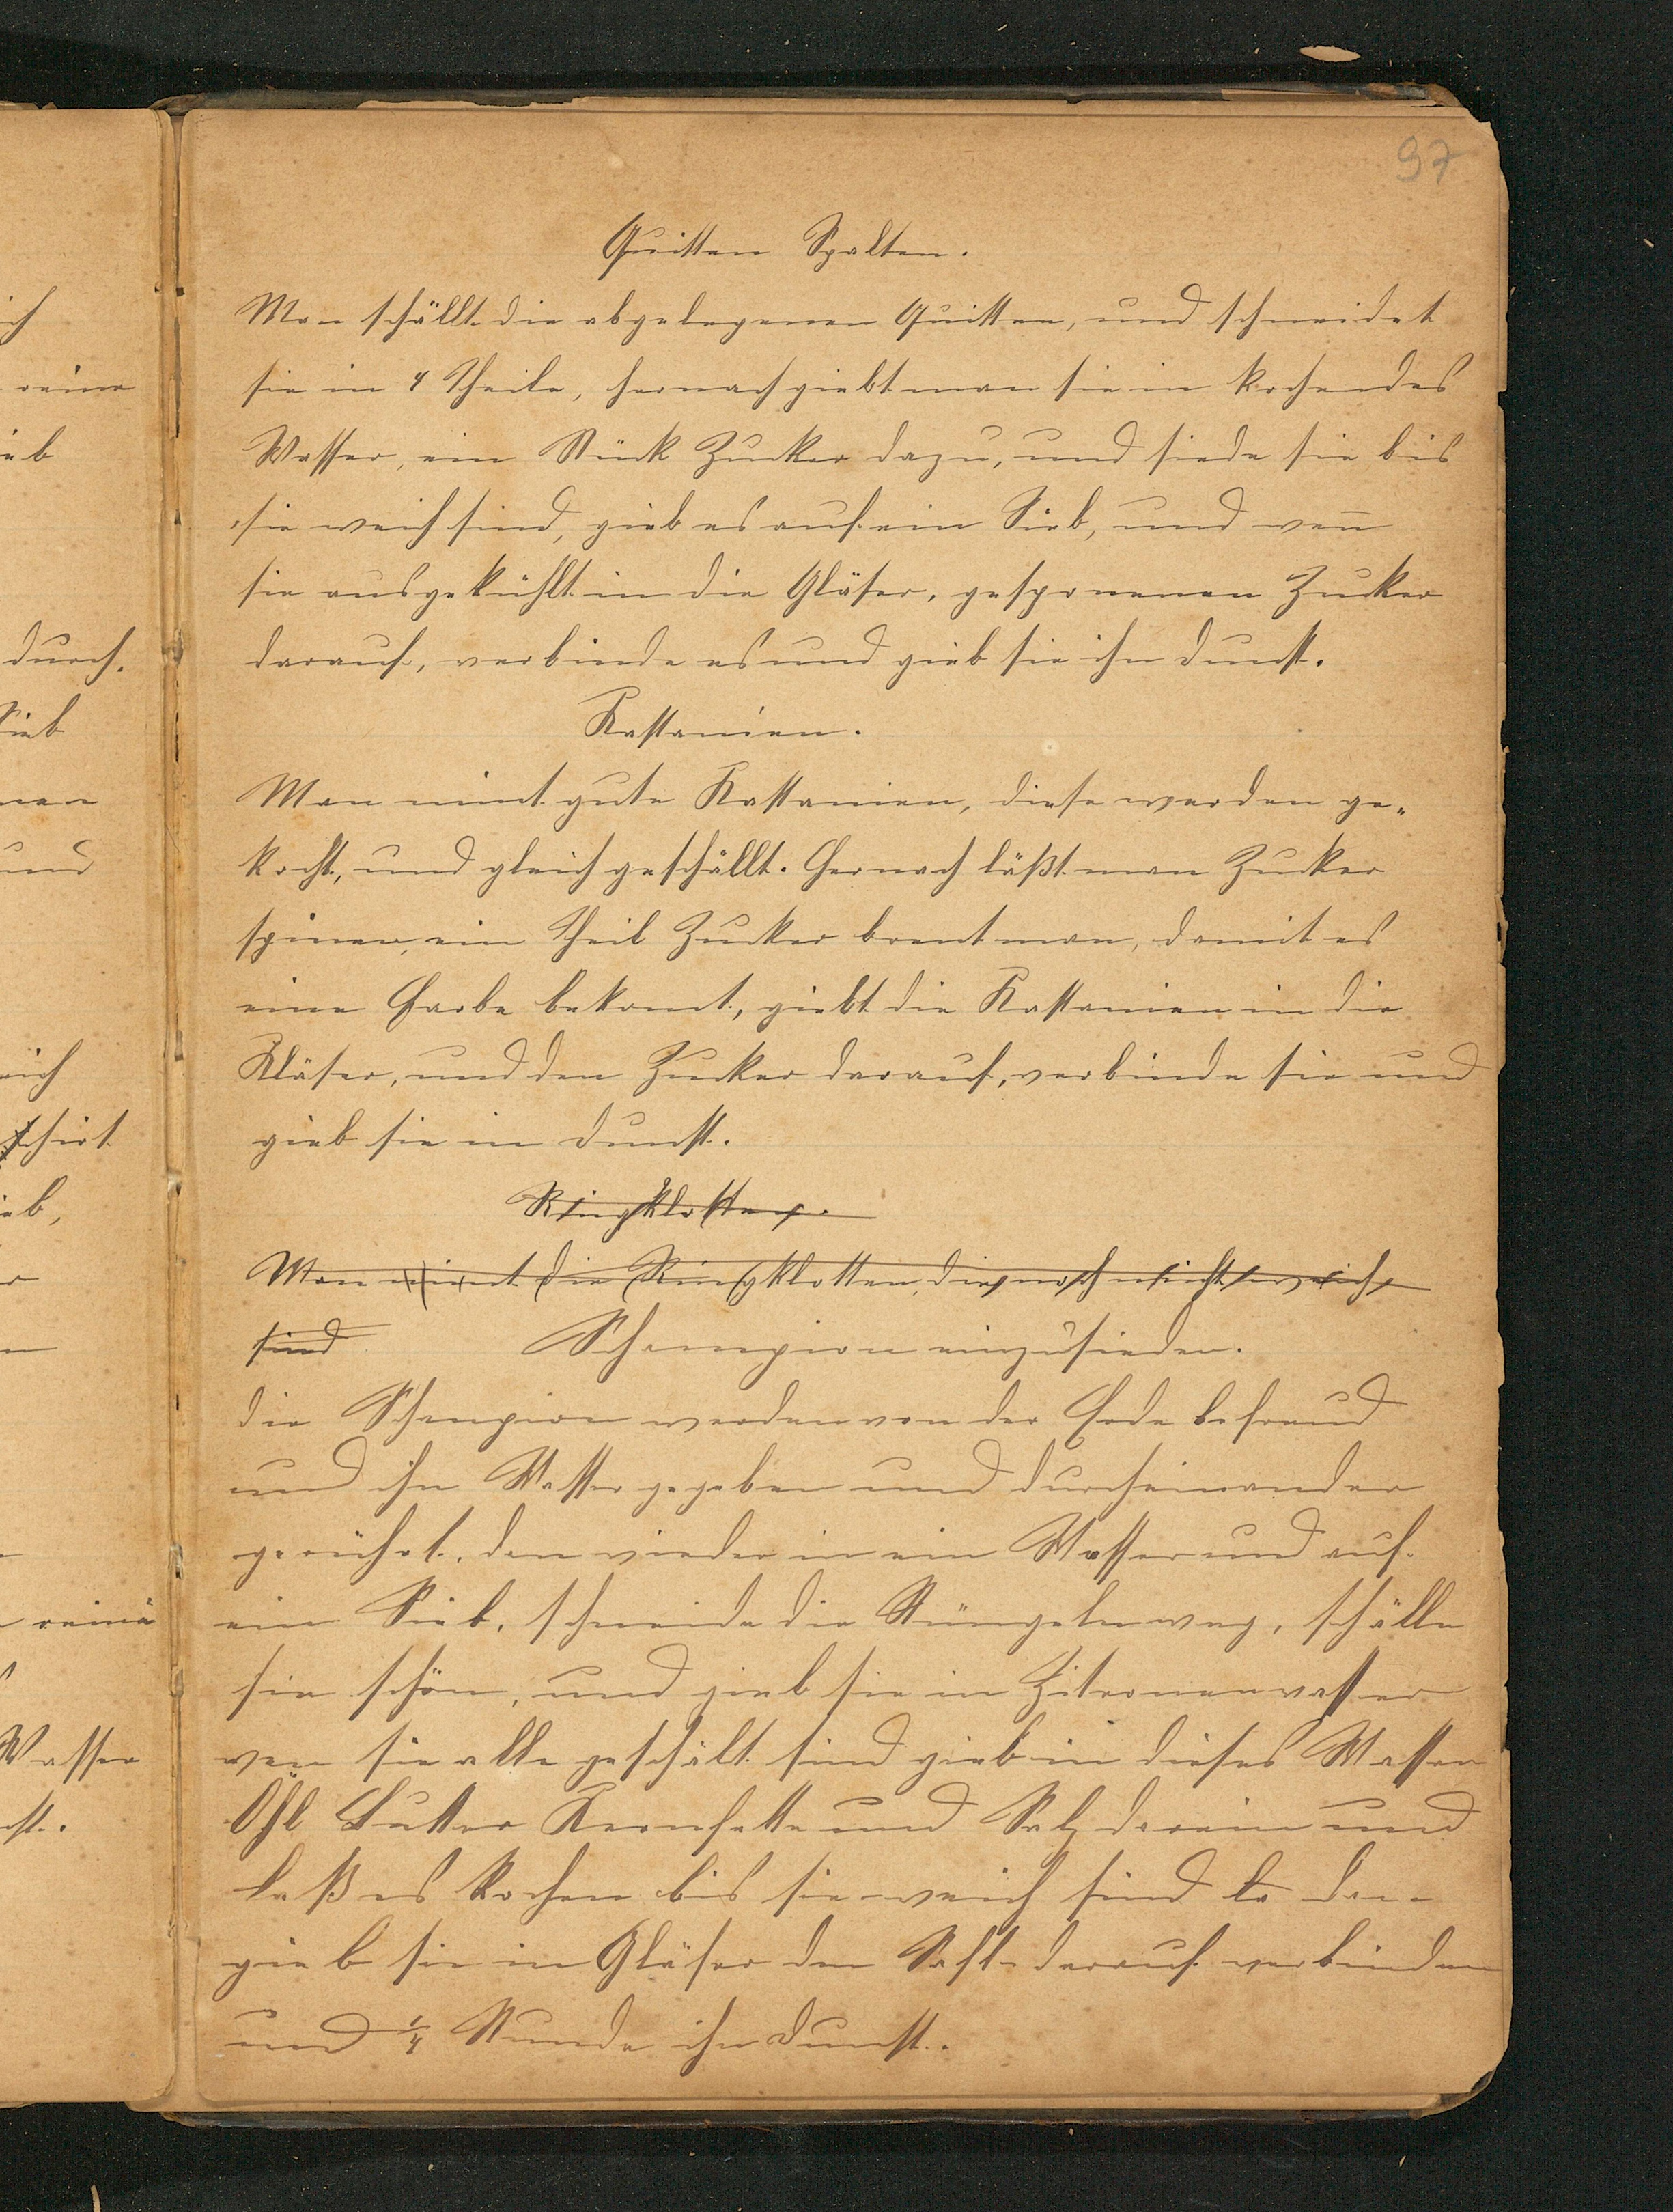 97
Quitten Spalten.
Man schällt die abgelegenen Quitten, und schneidet
sie in 4 Theile, hernach giebt man sie in kochendes
Wasser, ein Stück Zucker dazu, und siede sie bis
sie weich sind, gieb es auf ein Sieb, und wen̄
sie ausgekühlt in die Gläser, gesponenen Zucker
darauf, verbinde es und gieb sie ihn dunst.
Kastanien.
Man nimt gute Kastanien, diese werden ge„
kocht, und gleich geschällt. Hernach läßt man Zucker
spinen, ein Theil Zucker brent man, damit es
eine Farbe bekomt, giebt die Kastanien in die
Gläser, und den Zucker darauf, verbinde sie und
gieb sie in dunst.
Ringklotten.
Man nimt die Ringklotten, die noch nicht weich
sind
Schampion einzusieden.
die Schampion werden von der Erde befreud
und ihn Wasser gegeben und durcheinander
gerührt. den wieder in ein Wasser und auf
ein Sieb, schneide die Stüngeln weg, schälle
sie schön, und gieb sie in Zitronenwasser
wen sie alle geschält sind gieb in dieses Wasser
Öhl Butter Kernfette und Salz darein und
laß es kochen bis sie weich sind dan
gieb sie in Gläser den Saft darauf verbinden
und 1/4 Stunde ihn dunst.